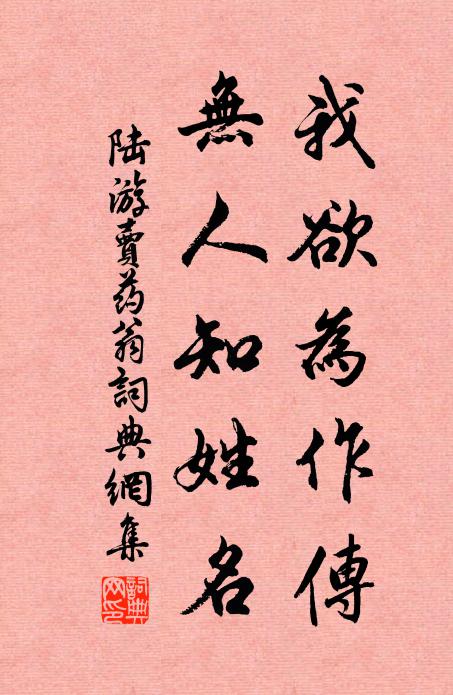 我欲為作傳
無人知姓名
陆游賣药翁詞典網集
詞典網印